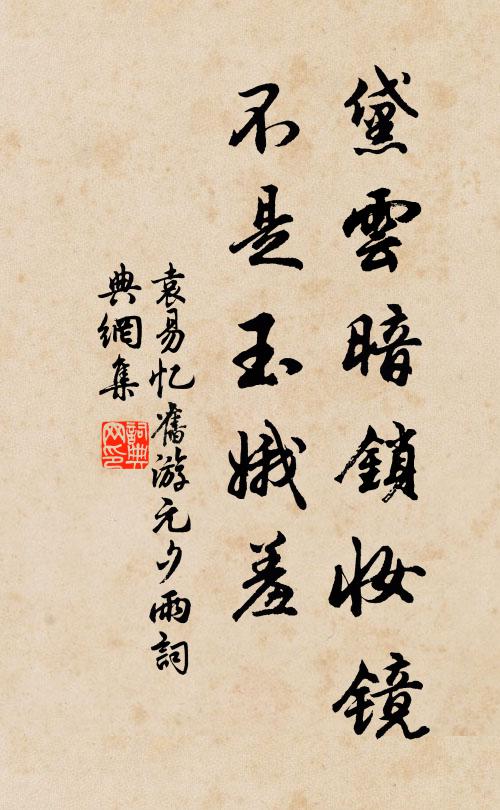 黛雲暗鎖妝鏡
不是玉娥羞
袁易忆舊游元夕雨詞
典網集
詞典网印